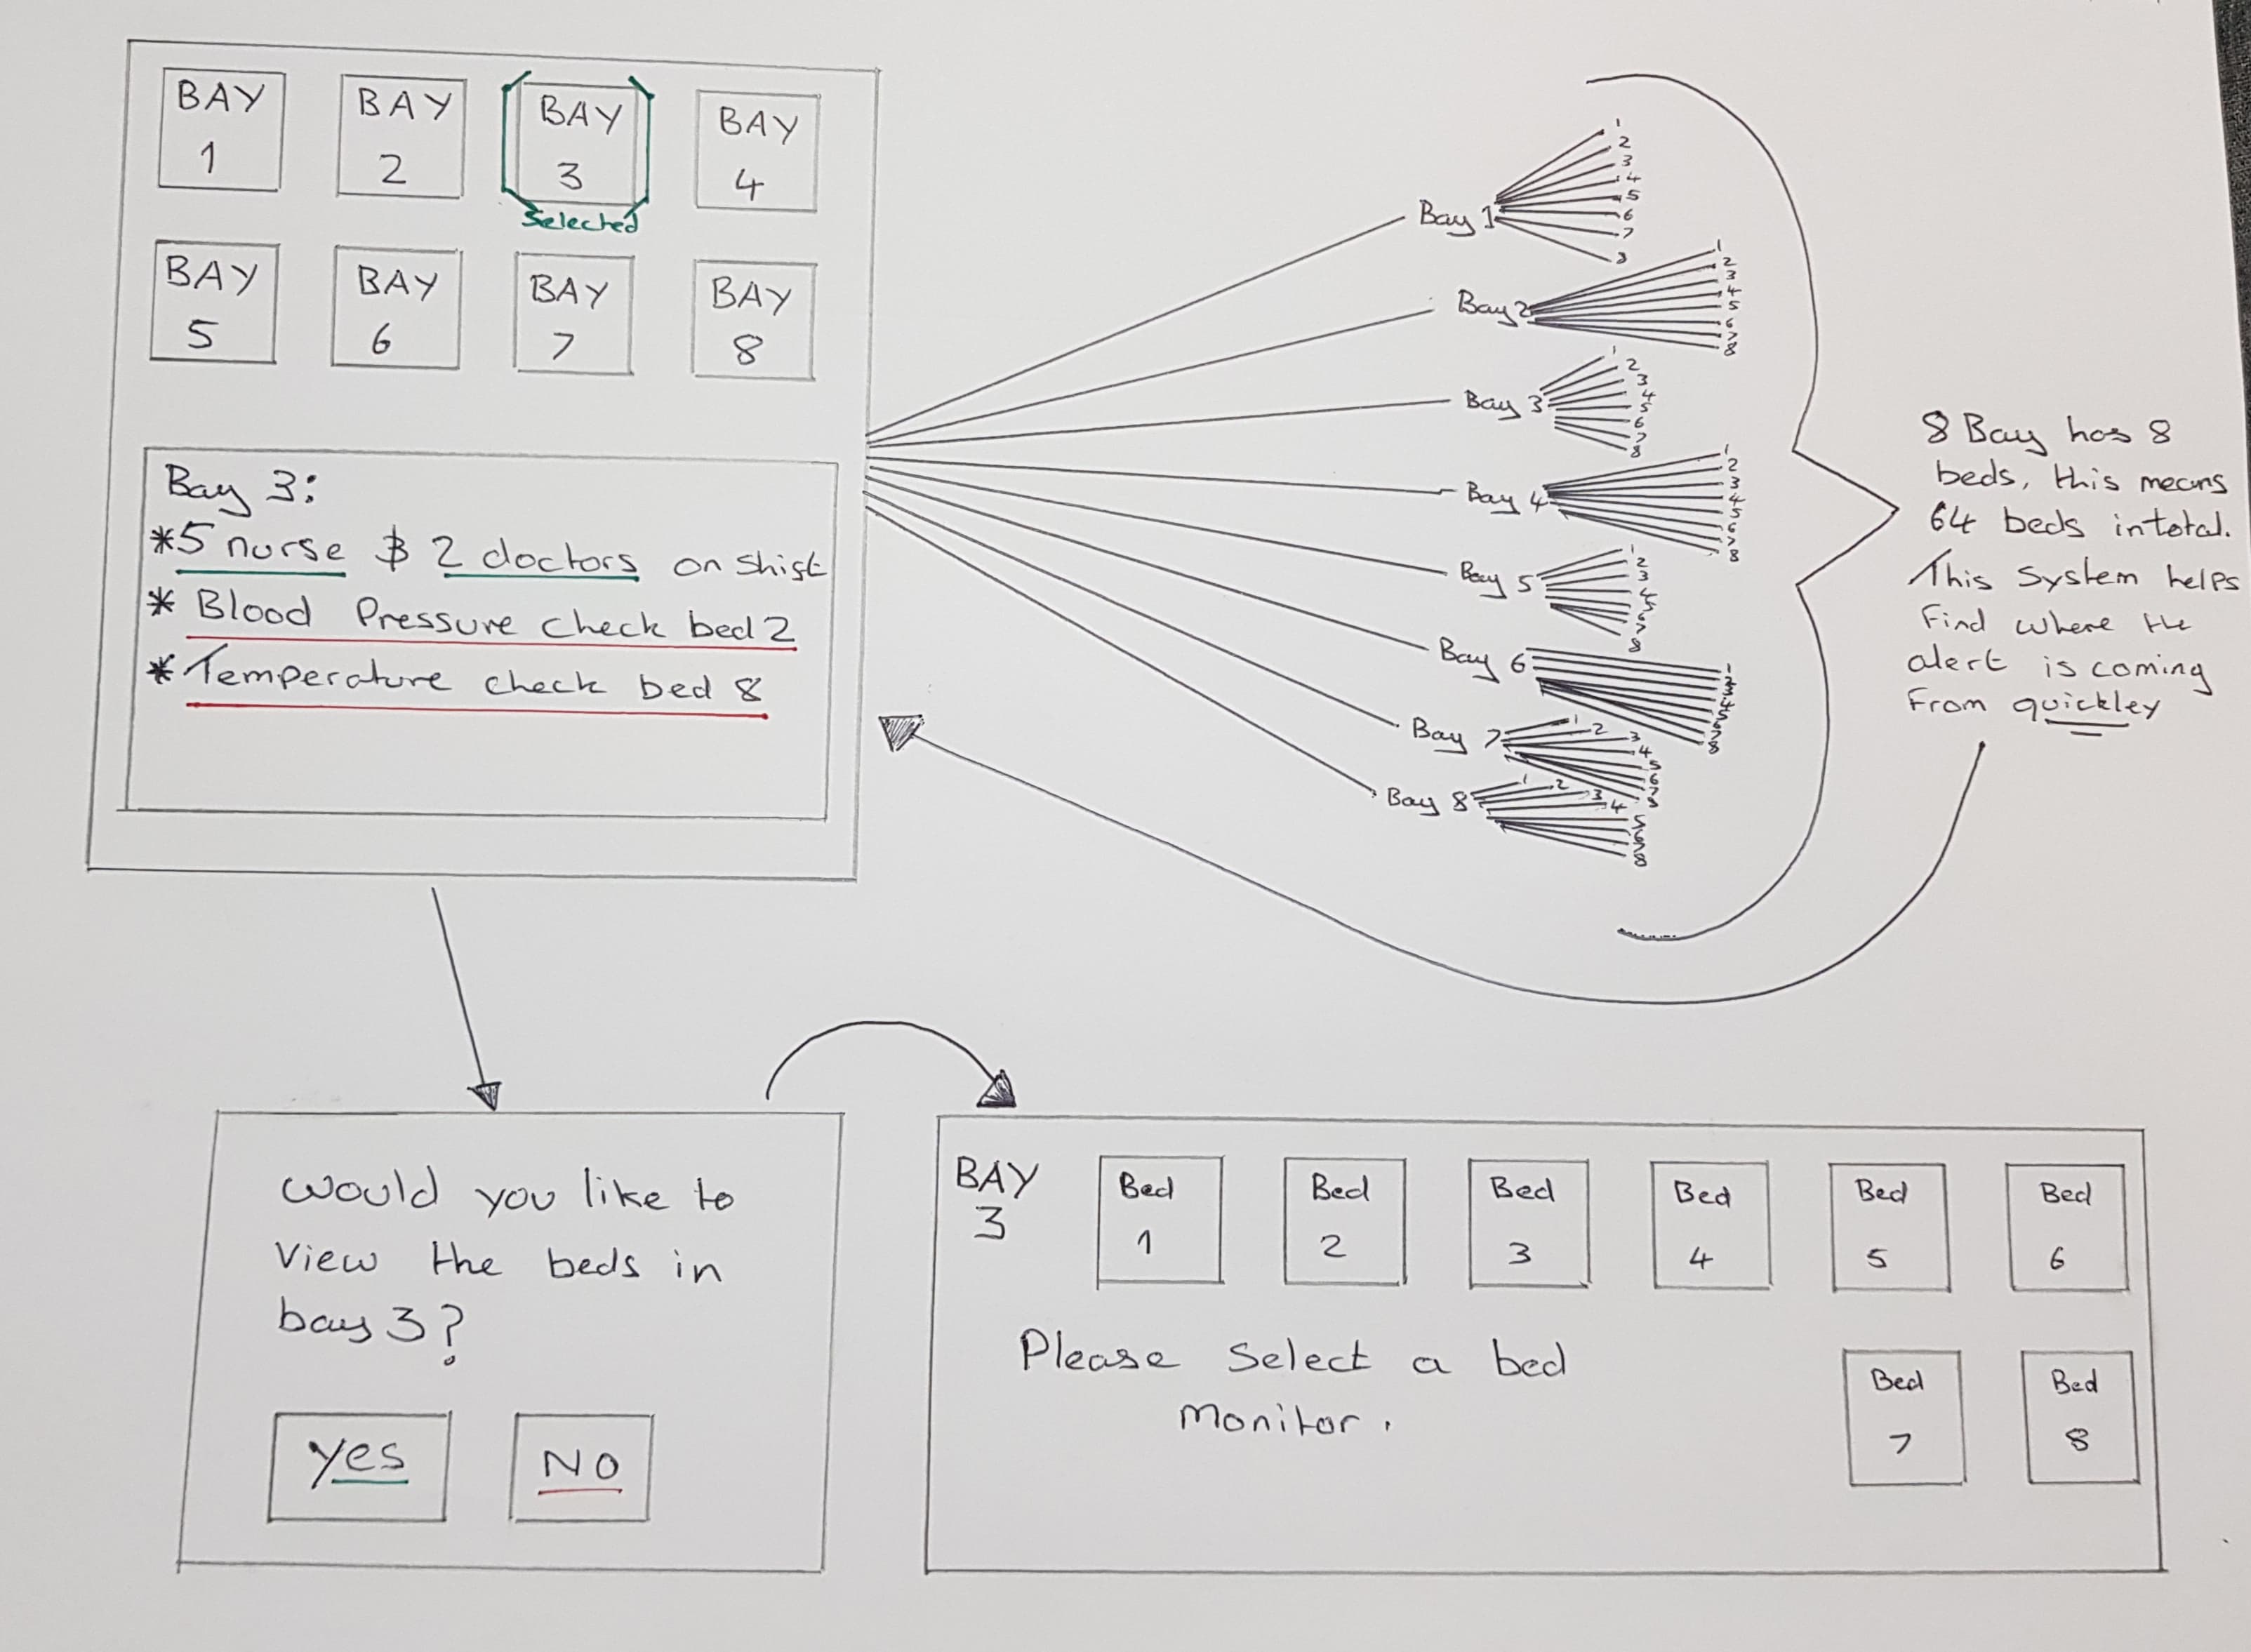 BAY
1
BAY
2
BAY
3
Selected
BAY
4
BAY
5
BAY
6
BAY
7
BAY
8
Bay 3:
*5 nurse $ 2 doctors on shift
* Blood Pressure check bed 2
* Temperature check bed 8
Bay 1
1
2
3
4
5
6
7
8
Bay 2
1
2
3
4
5
6
7
8
Bay 3
1
2
3
4
5
6
7
8
Bay 4
1
2
3
4
5
6
7
8
Bay 5
1
2
3
4
5
6
7
8
Bay 6
1
2
3
4
5
6
7
8
Bay 7
1
2
3
4
5
6
7
8
Bay 8
1
2
3
4
5
6
7
8
8 Bay has 8
beds, this means
64 beds in total.
This System helps
Find where the
alert is coming
From quickley
would you like to
view the beds in
bay 3?
Yes
No
BAY
3
Bed
1
Bed
2
Bed
3
Bed
4
Bed
5
Bed
6
Please Select a bed
monitor.
Bed
7
Bed
8